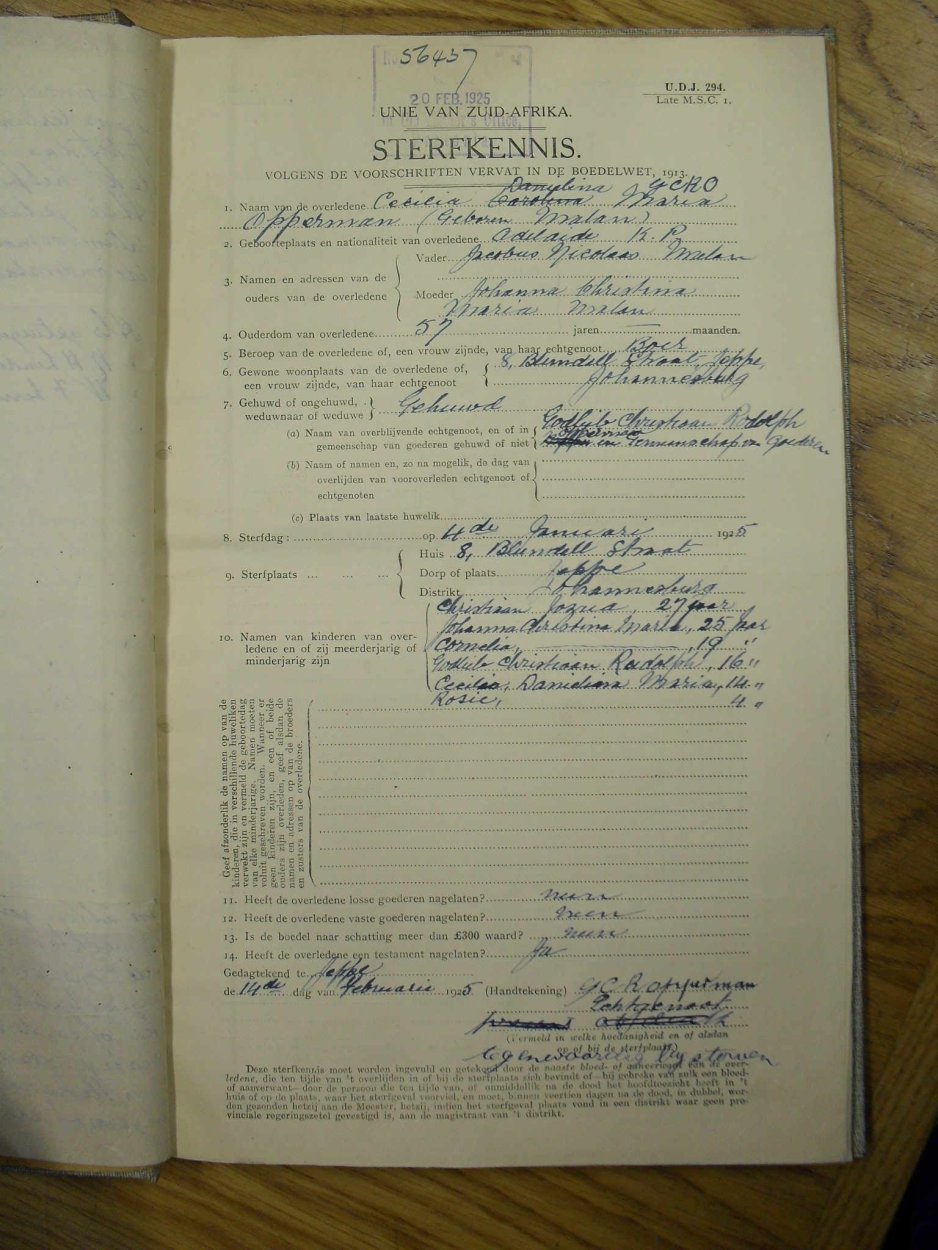 56437
20 FEB. 1925
U.D.J. 294.
Late M.S.C. 1.
UNIE VAN ZUID-AFRIKA.
STERFKENNIS.
VOLGENS DE VOORSCHRIFTEN VERVAT IN DE BOEDELWET, 1913.
Danielina GCRO
1. Naam van de overledene Cecilia Carolina Maria
Opperman (Geboren Malan)
2. Geboorteplaats en nationaliteit van overledene Adelaide K.P.
Vader Jacobus Nicolaas Malan
3. Namen en adressen van de ouders van de overledene
Moeder Johanna Christina
Maria Malan
4. Ouderdom van overledene 57 jaren — maanden.
5. Beroep van de overledene of, een vrouw zijnde, van haar echtgenoot Boer
6. Gewone woonplaats van de overledene of, een vrouw zijnde, van haar echtgenoot
8, Blundell Straat, Jeppe,
Johannesburg
7. Gehuwd of ongehuwd, weduwnaar of weduwe Gehuwd
(a) Naam van overblijvende echtgenoot, en of in gemeenschap van goederen gehuwd of niet
Godlieb Christiaan Rodolph
Opperman in Gemeenschap van Goederen
(b) Naam of namen en, zo na mogelik, de dag van
overlijden van vooroverleden echtgenoot of
echtgenoten
(c) Plaats van laatste huwelik
8. Sterfdag: op 4de Januari 1925
Huis 8, Blundell Straat
9. Sterfplaats ... ... ... Dorp of plaats Jeppe
Distrikt Johannesburg
10. Namen van kinderen van overledene en of zij meerderjarig of minderjarig zijn
Christiaan Jozua, 27 jaar
Johanna Christina Maria, 25 jaar
Cornelia, 19 "
Godlieb Christiaan Rudolph, 16 "
Cecilia, Danielina Maria, 14 "
Rosie, 4 "
Geef afzonderlik de namen op van de
kinderen, die in verschillende huweliken
verwekt zijn en vermeld de geboortedag
van elke minderjarige. Namen moeten
voluit geschreven worden. Wanneer er
geen kinderen zijn, en een of beide
ouders zijn overleden, geef alsdan de
namen en adressen op van de broeders
en zusters van de overledene.
11. Heeft de overledene losse goederen nagelaten? neen
12. Heeft de overledene vaste goederen nagelaten? neen
13. Is de boedel naar schatting meer dan £300 waard? neen
14. Heeft de overledene een testament nagelaten? Ja
Gedagtekend te Jeppe
de 14de dag van Februarie 1925 (Handtekening) G C R Opperman
Echtgenoot
(Vermeld in welke hoedanigheid en of alsdan
op of bij de sterfplaats.)
tegenwoordig by sterven
Deze sterfkennis moet worden ingevuld en getekend door de naaste bloed- of aanverwant van de over-
ledene, die ten tijde van 't overlijden in of bij de sterfplaats zich bevindt of—bij gebreke van zulk een bloed-
of aanverwant—door de persoon die ten tijde van, of onmiddellik na de dood het hoofdtoezicht heeft in 't
huis of op de plaats, waar het sterfgeval voorviel, en moet, binnen veertien dagen na de dood, in dubbel, wor-
den gezonden hetzij aan de Meester, hetzij, indien het sterfgeval plaats vond in een distrikt waar geen pro-
vinciale regeringszetel gevestigd is, aan de magistraat van 't distrikt.